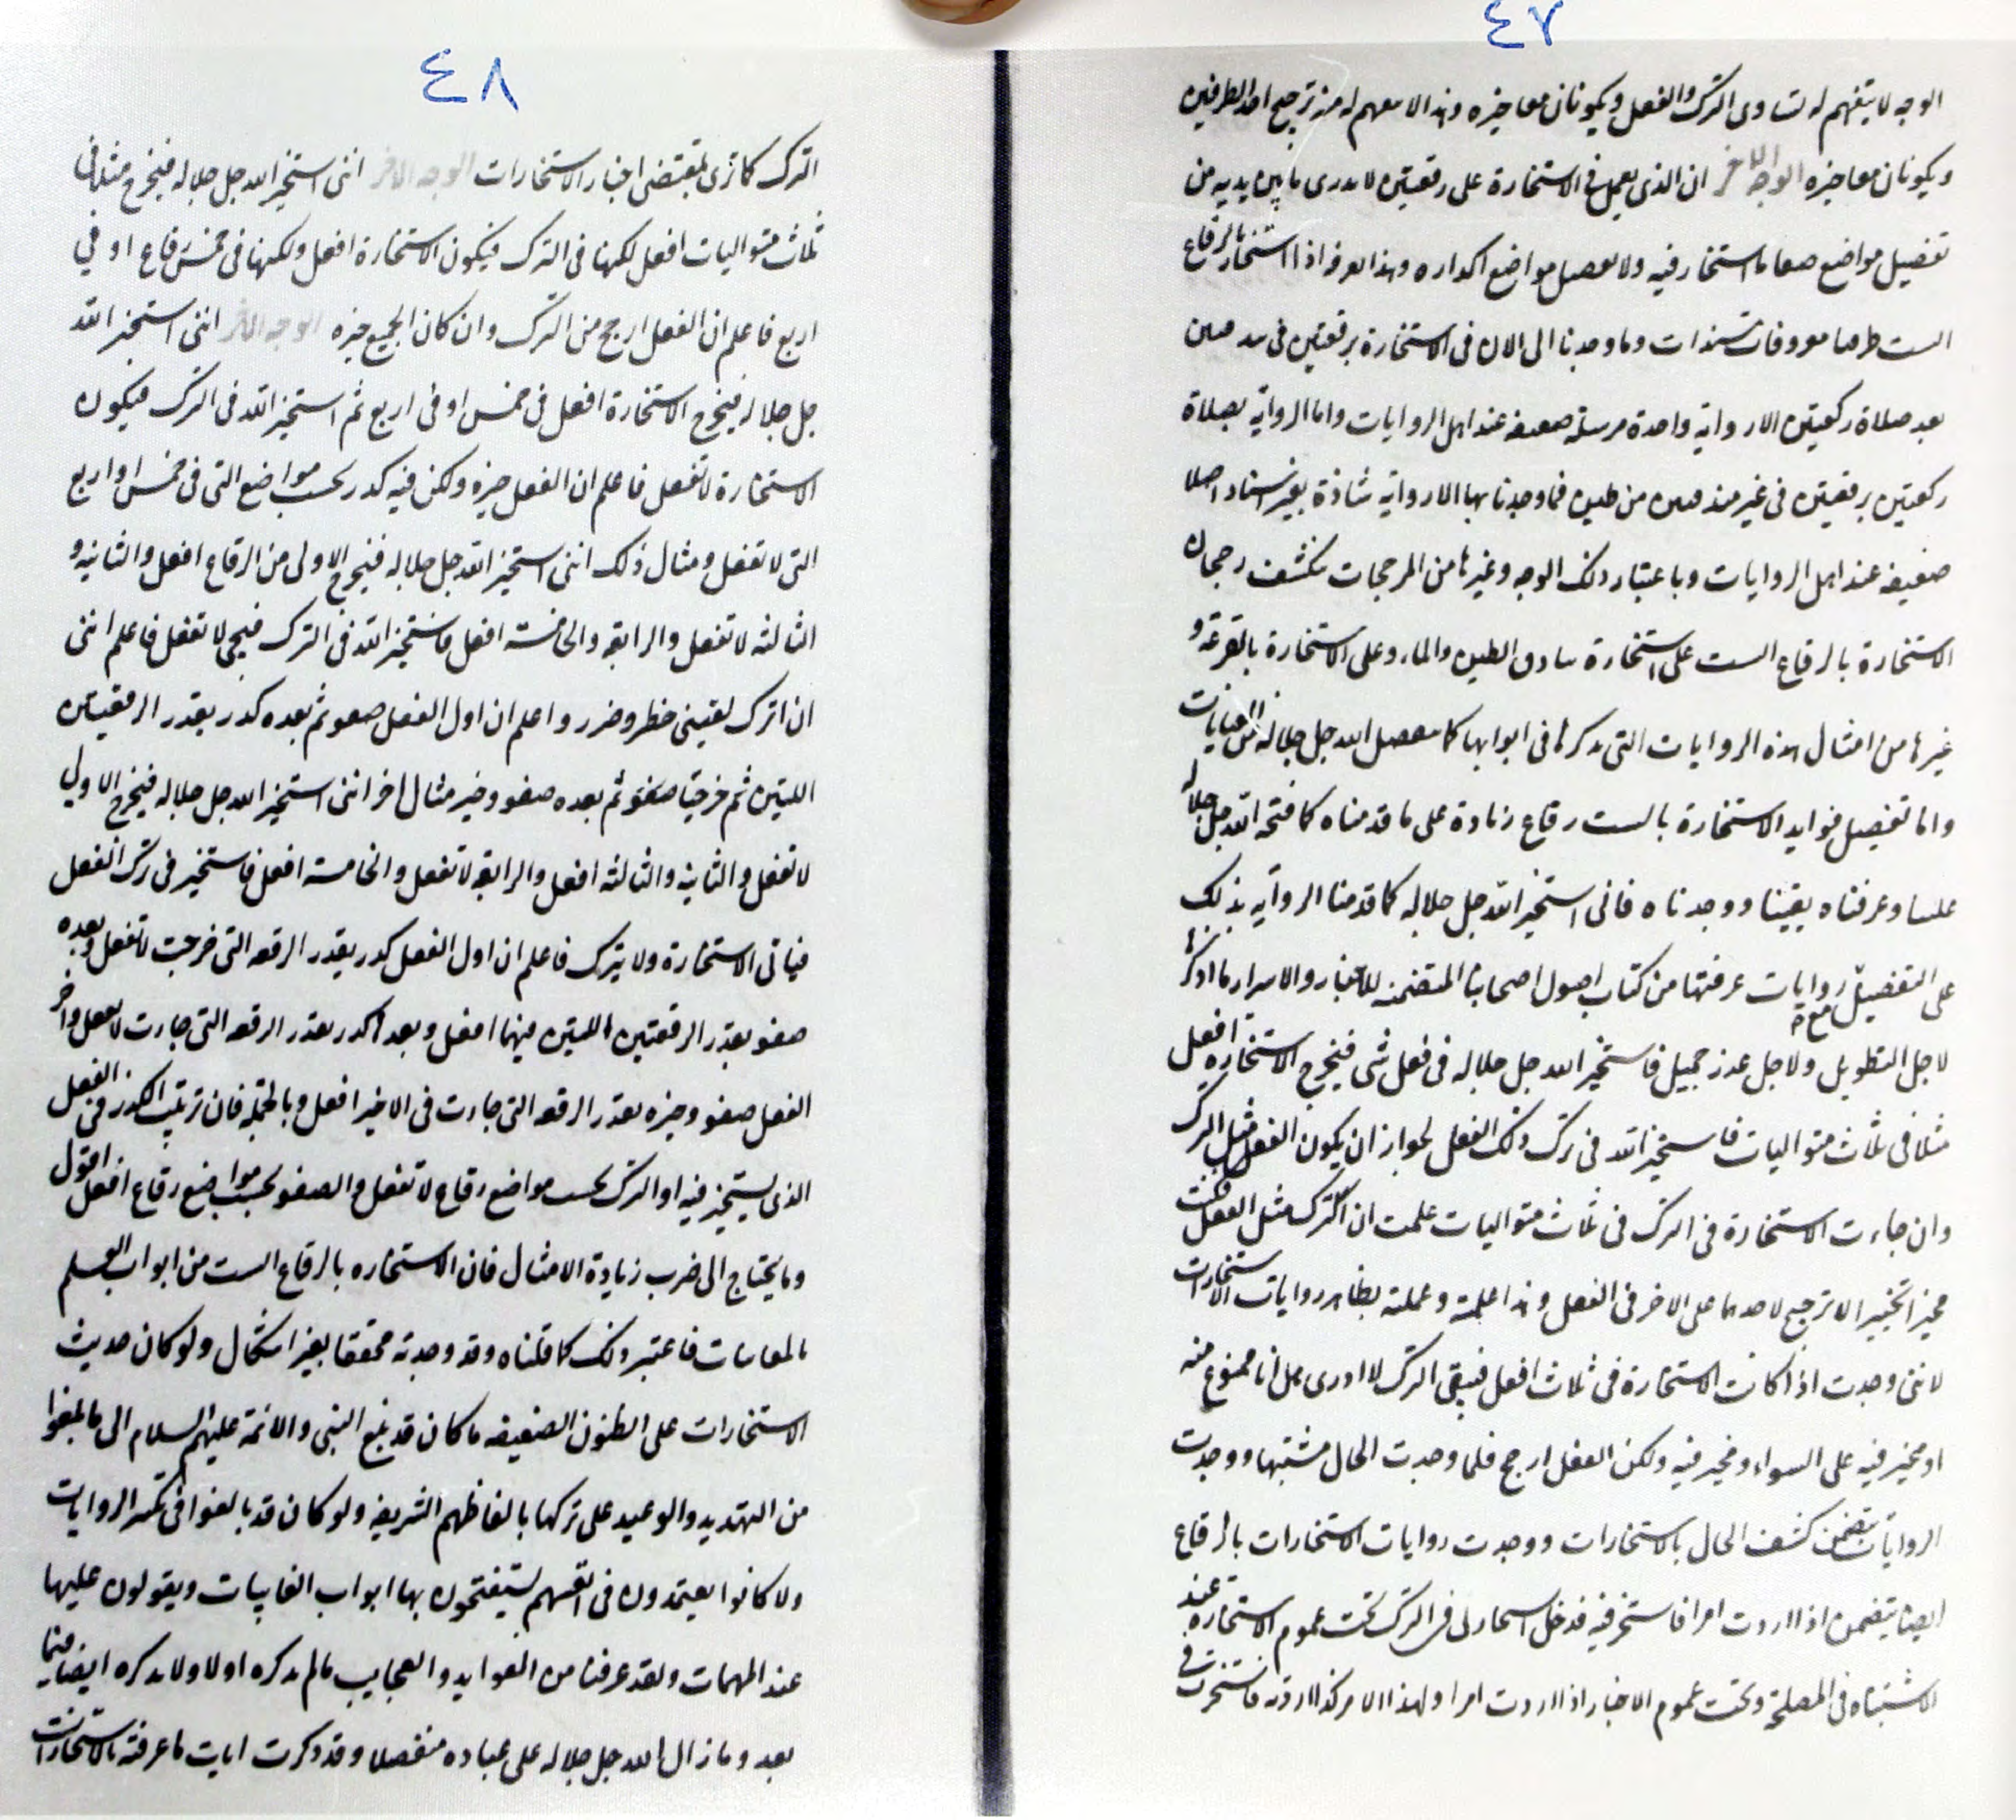 ٤٧
الوجه لا يتفهم له تساوى الترك والفعل ويكونان معا خيره وهذا لا يفهم له منه ترجيح احد الطرفين
ويكونان معا خيره الوجه الاخر ان الذى يعمل فى الاستخارة على رقعتين لا يدرى ما بين يديه من
تفضيل مواضع صفا ما استخار فيه ولا تفصيل مواضع اكداره وهذا يعرفه اذا استخار بالرقاع
الست وما وجدنا الى الان فى الاستخارة برقعتين فى
بعد صلاة ركعتين الا رواية واحدة مرسلة ضعيفه عند اهل الروايات واما الرواية بصلاة
ركعتين برقعتين فى غير من طين فما وجدنا بها الا رواية شاذة بغير اسناد اصلا
ضعيفه عند اهل الروايات وباعتبار ذلك الوجه وغيرها من المرجحات تكشف رجحان
الاستخارة بالرقاع الست على استخارة بنادق الطين والماء وعلى الاستخارة بالقرعة و
غيرها من امثال هذه الروايات التى نذكرها فى ابوابها كما تفضل الله جل جلاله من العنايات
واما تفصيل فوايد الاستخارة بالست رقاع زيادة على ما قدمناه كما فتحه الله جل جلاله
علينا وعرفناه يقينا ووجدناه فانى استخير الله جل جلاله كما قدمنا الرواية بذلك
على التفصيل روايات عرفتها من كتاب اصول اصحابنا المتضمنه للاخبار والاسرار ما اذكرها
لاجل التطويل ولاجل عذر جميل فاستخير الله جل جلاله فى فعل شى فيخرج الاستخاره افعل
مثلا فى ثلاث متواليات فاستخير الله فى ترك ذلك الفعل لجواز ان يكون الفعل مثل الترك
وان جاءت الاستخارة فى الترك فى ثلاث متواليات علمت ان الترك مثل الفعل وكنت
مخيرا تخيير الا ترجيح لاحدهما على الاخر فى الفعل وهذا علمته وعملته بظاهر روايات الاستخارات
لاننى وجدت اذا كانت الاستخارة فى ثلاث افعل فيبقى الترك لا ادرى هل انا ممنوع منه
او مخير فيه على السواء ومخير فيه ولكن الفعل ارجح فلما وجدت الحال مشتبها ووجدت
الروايات تتضمن كشف الحال بالاستخارات ووجدت روايات الاستخارات بالرقاع
ايضا يتضمن اذا اردت امرا فاستخر فيه فدخل استخارتى فى الترك تحت عموم الاستخاره عند
الاشتباه فى المصلحة وتحت عموم الاخبار اذا اردت امرا ولهذا الامر كذا اردته فاستخرت فى
٤٨
الترك كما ترى بمقتضى اخبار الاستخارات الوجه الاخر اننى استخير الله جل جلاله فيخرج مثلا فى
ثلاث متواليات افعل لكنها فى الترك فيكون الاستخارة افعل ولكنها فى خمس رقاع او فى
اربع فاعلم ان الفعل ارجح من الترك وان كان الجميع خيره الوجه الاخر اننى استخير الله
جل جلاله فيخرج الاستخارة افعل فى خمس او فى اربع ثم استخير الله فى الترك فيكون
الاستخارة لا تفعل فاعلم ان الفعل خيره ولكن فيه كدر بحسب مواضع التى فى خمس او اربع
التى لا تفعل ومثال ذلك اننى استخير الله جل جلاله فيخرج الاولى من الرقاع افعل والثانيه و
الثالثه لا تفعل والرابعه والخامسة افعل فاستخير الله فى الترك فيجى لا تفعل فاعلم اننى
ان اترك لقينى خطر وضرر واعلم ان اول الفعل صفو ثم بعده كدر بقدر الرقعتين
اللتين ثم خرجتا صفو ثم بعده صفو وخير مثال اخر اننى استخير الله جل جلاله فيخرج الاولى
لا تفعل والثانيه والثالثه افعل والرابعه لا تفعل والخامسة افعل فاستخير فى ترك الفعل
فياتى الاستخارة ولا يترك فاعلم ان اول الفعل كدر بقدر الرقعه التى خرجت لا تفعل وبعده
صفو بقدر الرقعتين اللتين فيهما افعل وبعد اكدر بقدر الرقعه التى جاءت لا تفعل واخر
الفعل صفو وخيره بقدر الرقعه التى جاءت فى الاخير افعل وبالجملة فان ترتيب الكدر فى الفعل
الذى يستخير فيه او الترك بحسب مواضع رقاع لا تفعل والصفو بحسب مواضع رقاع افعل اقول
وما يحتاج الى ضرب زيادة الامثال فان الاستخاره بالرقاع الست من ابواب العلم
بالغايبات فاعتبر ذلك كما قلناه وقد وجدته محققا بغير اشكال ولو كان حديث
الاستخارات على الظنون الضعيفه ما كان قد بلغ النبى والائمة عليهم السلام الى ما بلغوا
من التهديد والوعيد على تركها بالفاظهم الشريفه ولو كان قد بالغوا فى تكثير الروايات
ولا كانوا يعتمدون فى انفسهم يستفتحون بها ابواب الغايبات ويقولون عليها
عند المهمات ولقد عرفنا من الفوايد والعجايب مالم نذكره اولا ولا نذكره ايضا فيما
بعد وما زال الله جل جلاله على عباده متفضلا وقد ذكرت ايات ما عرفته بالاستخارات